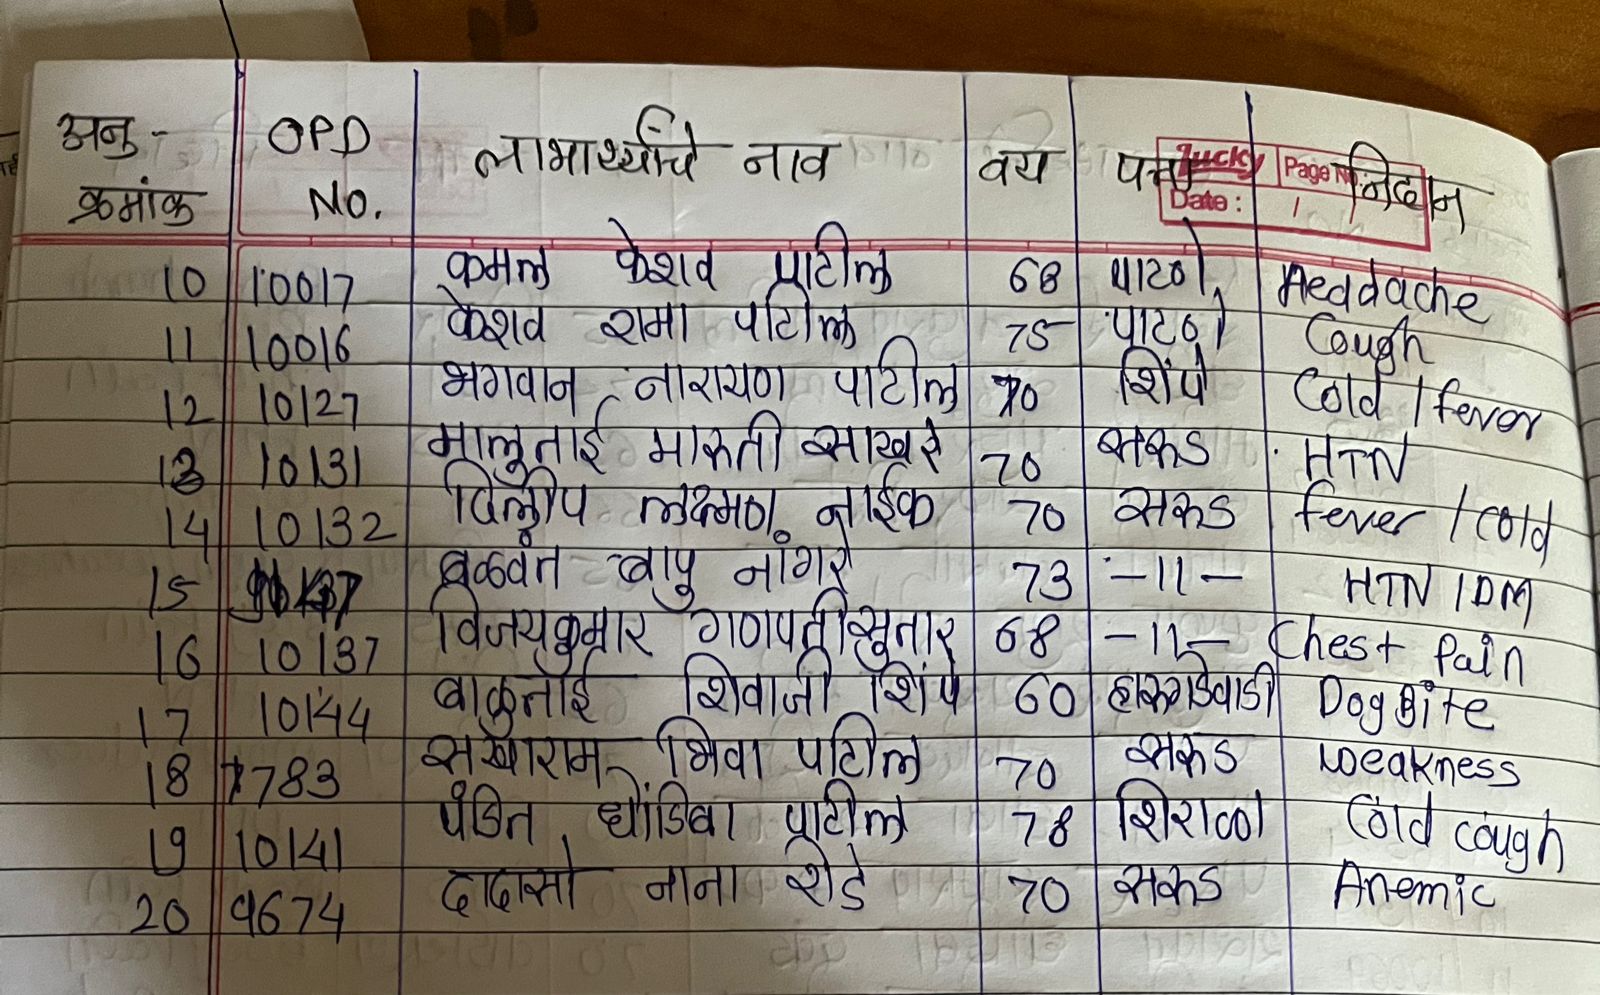 अनु - क्रमांक OPD No. लाभार्थ्यांचे नाव वय पत्ता निदान
Lucky Page No.
Date :
10 10017 कमल केशव पाटील 68 पाटणे Headache
11 10016 केशव रामा पाटील 75 पाटणे Cough
12 10127 भगवान नारायण पाटील 70 शिंपे Cold / fever
13 10131 मालुताई मारुती साखरे 70 सरुड HTN
14 10132 दिलीप लक्ष्मण नाईक 70 सरुड fever / cold
15 बळवंत बापु नांगरे 73 -11- HTN / DM
16 10137 विजयकुमार गणपती सुतार 68 -11- Chest Pain
17 10144 बाळुताई शिवाजी शिंपे 60 Dog Bite
18 7783 सखाराम भिवा पाटील 70 सरुड weakness
19 10141 पंडित धोंडिबा पाटील 78 शिराळा Cold cough
20 9674 दादासो नाना रोडे 70 सरुड Anemic